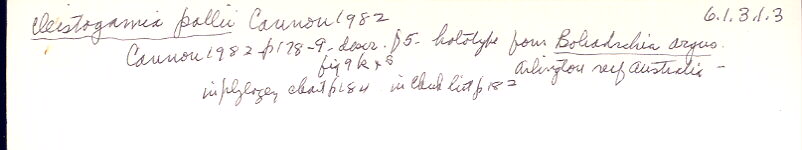 Cleistogamia pallii Cannon 1982 6.1.3.1.3
Cannon 1982 p178-9- descr. p5- holotype from Bohadschia argus.
fig 9 k + s Arlington reef Australia -
in phylogeny chart p184 in check list p182